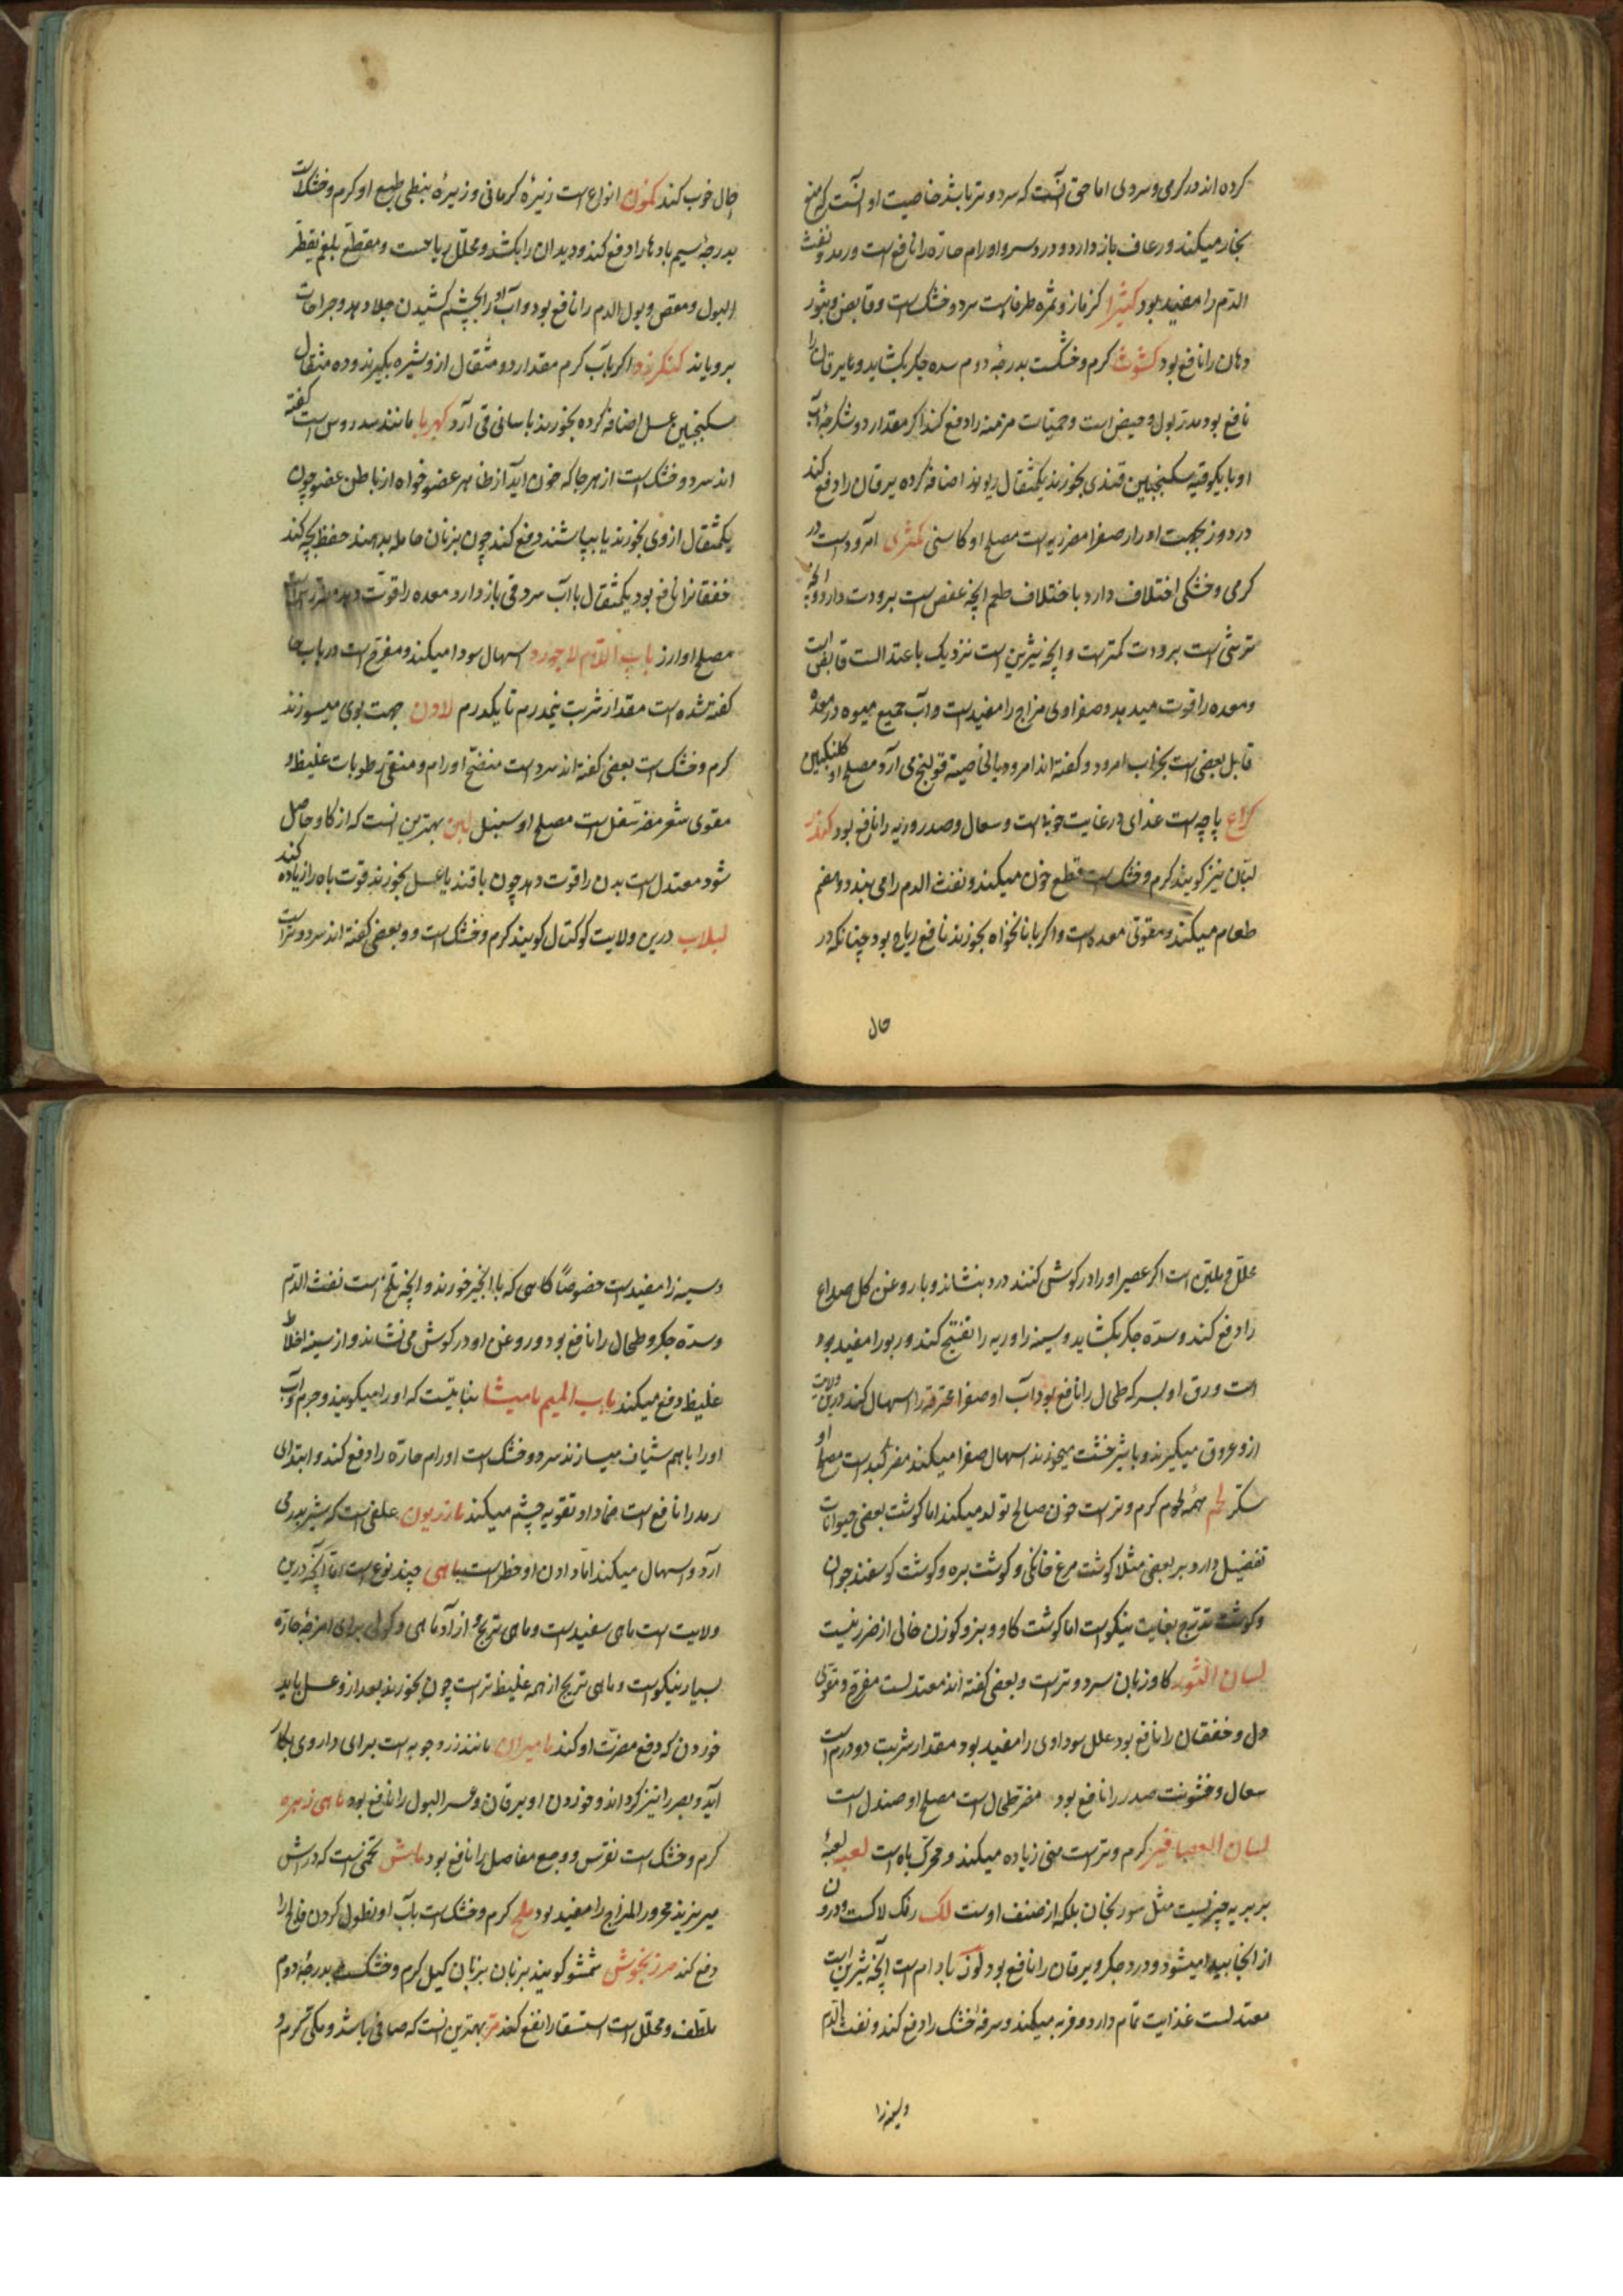 کرده‌اند در کرمی و سردی اما حق آنست که سرد و تر باشد خاصیت او آنست که منع
بخار میکند و رعاف باز دارد و درد سر و اورام حاره را نافع است و رمد و نفث
الدم را مفید بود کثیرا کزمازو ثمره طرفاست سرد و خشک است و قابض و بثور
دهان را نافع بود کشوث کرم و خشکست بدرجهٔ دوم سده جکر بکشاید و یرقان را
نافع بود مدر بول و حیض است و حمیات مزمنه را دفع کند اکر مقدار دو سکرجهٔ آب
او با یکوقیه سکنجبین قندی بخورند یکمثقال ریوند اضافه کرده یرقان را دفع کند
در دو روز بجهت ادرار صفرا مضر ریه است مصلح او کاسنی کمثری امرودست در
کرمی و خشکی اختلاف دارد باختلاف طعم انچه عفص است برودت دارد و انچه
ترشی است برودت کمترست و انچه شیرین است نزدیک باعتدالست قابض است
و معده را قوت میدهد و صفراوی مزاج را مفیدست و آب جمیع میوه در معده
قابل بعضی است بخلاف امرود و کفته‌اند امرود بالخاصیه قولنج می آرد مصلح او کلنکبین
کراع پاچه است غذای در غایت خوبست و سعال و صدر و ریه را نافع بود کندر
لبان نیز کویند کرم و خشک است قطع خون میکند و نفث الدم را می بندد و هضم
طعام میکند و مقوی معده است و اکر با نانخواه بخورند نافع ریاح بود چنانکه در
حال
حال خوب کند کمون انواع است زیرهٔ کرمانی و زیرهٔ نبطی طبع او کرم و خشک است
بدرجهٔ سیم بادها را دفع کند و دیدان را بکشد و محلل ریاحست و مقطع بلغم تقطر
البول و مغص و بول الدم را نافع بود و آب او را بچشم کشیدن جلا دهد و جراحات
برویاند کنکرزد اکر باب کرم مقدار دو مثقال ازو شیره بکیرند و ده مثقال
سکنجبین عسل اضافه کرده بخورند باسانی قی آرد کهربا مانند سندروس است کفته
اند سرد و خشک است از هر جا که خون آید از ظاهر عضو خواه از باطن عضو چون
یکمثقال از وی بخورند یا بپاشند دفع کند چون بزنان حامله بدهند حفظ بچه کند
خفقانرا نافع بود یکمثقال با آب سرد قی باز دارد و معده را قوت دهد
مصلح او ارز باب اللام لاجورد اسهال سودا میکند و مفرح است در باب حا
کفته شده است مقدار شربت نیمدرم تا یکدرم لادن جهت بوی میسوزند
کرم و خشک است بعضی کفته‌اند سردست منضج اورام و منقی رطوبات غلیظ و
مقوی شعر مضر سفل است مصلح او سنبل لبن بهترین انست که از کاو حاصل
شود معتدل است بدن را قوت دهد چون با قند یا عسل بخورند قوت باه را زیاده کند
لبلاب درین ولایت کوکتل کویند کرم و خشک است و بعضی کفته‌اند سرد و تر است
محلل و ملین است اکر عصیر او را در کوش کنند درد بنشاند و با روغن کل صداع
را دفع کند و سده جکر بکشاید و سینه را و ریه را تفتیح کند و ربو را مفید بود
است ورق او بسرکه طحال را نافع بود آب او صفرا محترقه را اسهال کند درین ولایت
ازو عروق میکیرند و با شیر خشت میخورند اسهال صفرا میکند مضر کبد است مصلح او
سکر لحم همهٔ لحوم کرم و تر است خون صالح تولد میکند اما کوشت بعضی حیوانات
تفضیل دارد بر بعضی مثلا کوشت مرغ خانکی و کوشت بره و کوشت کوسفند جوان
و کوشت تذرج بغایت نیکوست اما کوشت کاو و بز و کوزن خالی از ضرر نیست
لسان الثور کاو زبان سرد و تر است و بعضی کفته‌اند معتدلست مفرح و مقوی
دل و خفقان را نافع بود علل سوداوی را مفید بود مقدار شربت دو درم است
سعال و خشونت صدر را نافع بود مضر طحال است مصلح او صندل است
لسان العصافیر کرم و تر است منی زیاده میکند و محرک باه است لعبه لعبهٔ
بربریه چیزیست مثل سورنجان بلکه از صنف اوست لک رنک لاکست و درون
از انجا پیدا میشود و درد جکر و یرقان را نافع بود لوز بادام است انچه شیرین است
معتدلست غذایت تمام دارد و فربه میکند و سرفهٔ خشک را دفع کند و نفث الدم
و سینه را
و سینه را مفیدست خصوصاً کاهی که با انجیر خورند و انچه تلخ است نفث الدم
و سدهٔ جکر و طحال را نافع بود و روغن او درد کوش می نشاند و از سینه اخلاط
غلیظ دفع میکند باب المیم مامیثا نباتیست که او را میکوبند و جرم و آب
او را با هم شیاف میسازند سرد و خشک است اورام حاره را دفع کند و ابتدای
رمد را نافع است ضماد او تقویه چشم میکند مازریون علفی است که شیر بدر می
آرد و اسهال میکند اما دادن او خطر است ماهی چند نوع است اما آنچه درین
ولایت است ماهی سفیدست و ماهی تریج و ازاد ماهی و کولی برای امزجهٔ حاره
بسیار نیکوست و ماهی تریج از همه غلیظ تر است چون بخورند بعد ازو عسل باید
خوردن که دفع مضرت او کند مامیران مانند زردچوبه است برای داروی بکار
آید و بصر را تیز کرداند و خوردن او یرقان و عسر البول را نافع بود ماهی زهره
کرم و خشک است نقرس و وجع مفاصل را نافع بود ماش تخمی است که در اش
میریزند محرور المزاج را مفید بود ملح کرم و خشک است باب او نطول کردن فالج را
دفع کند مرزنجوش شمشو کویند بزبان کیل کرم و خشکست بدرجهٔ دوم
ملطف و محلل است استسقا را نفع کند مر بهترین انست که صافی باشد و مکی کرم و